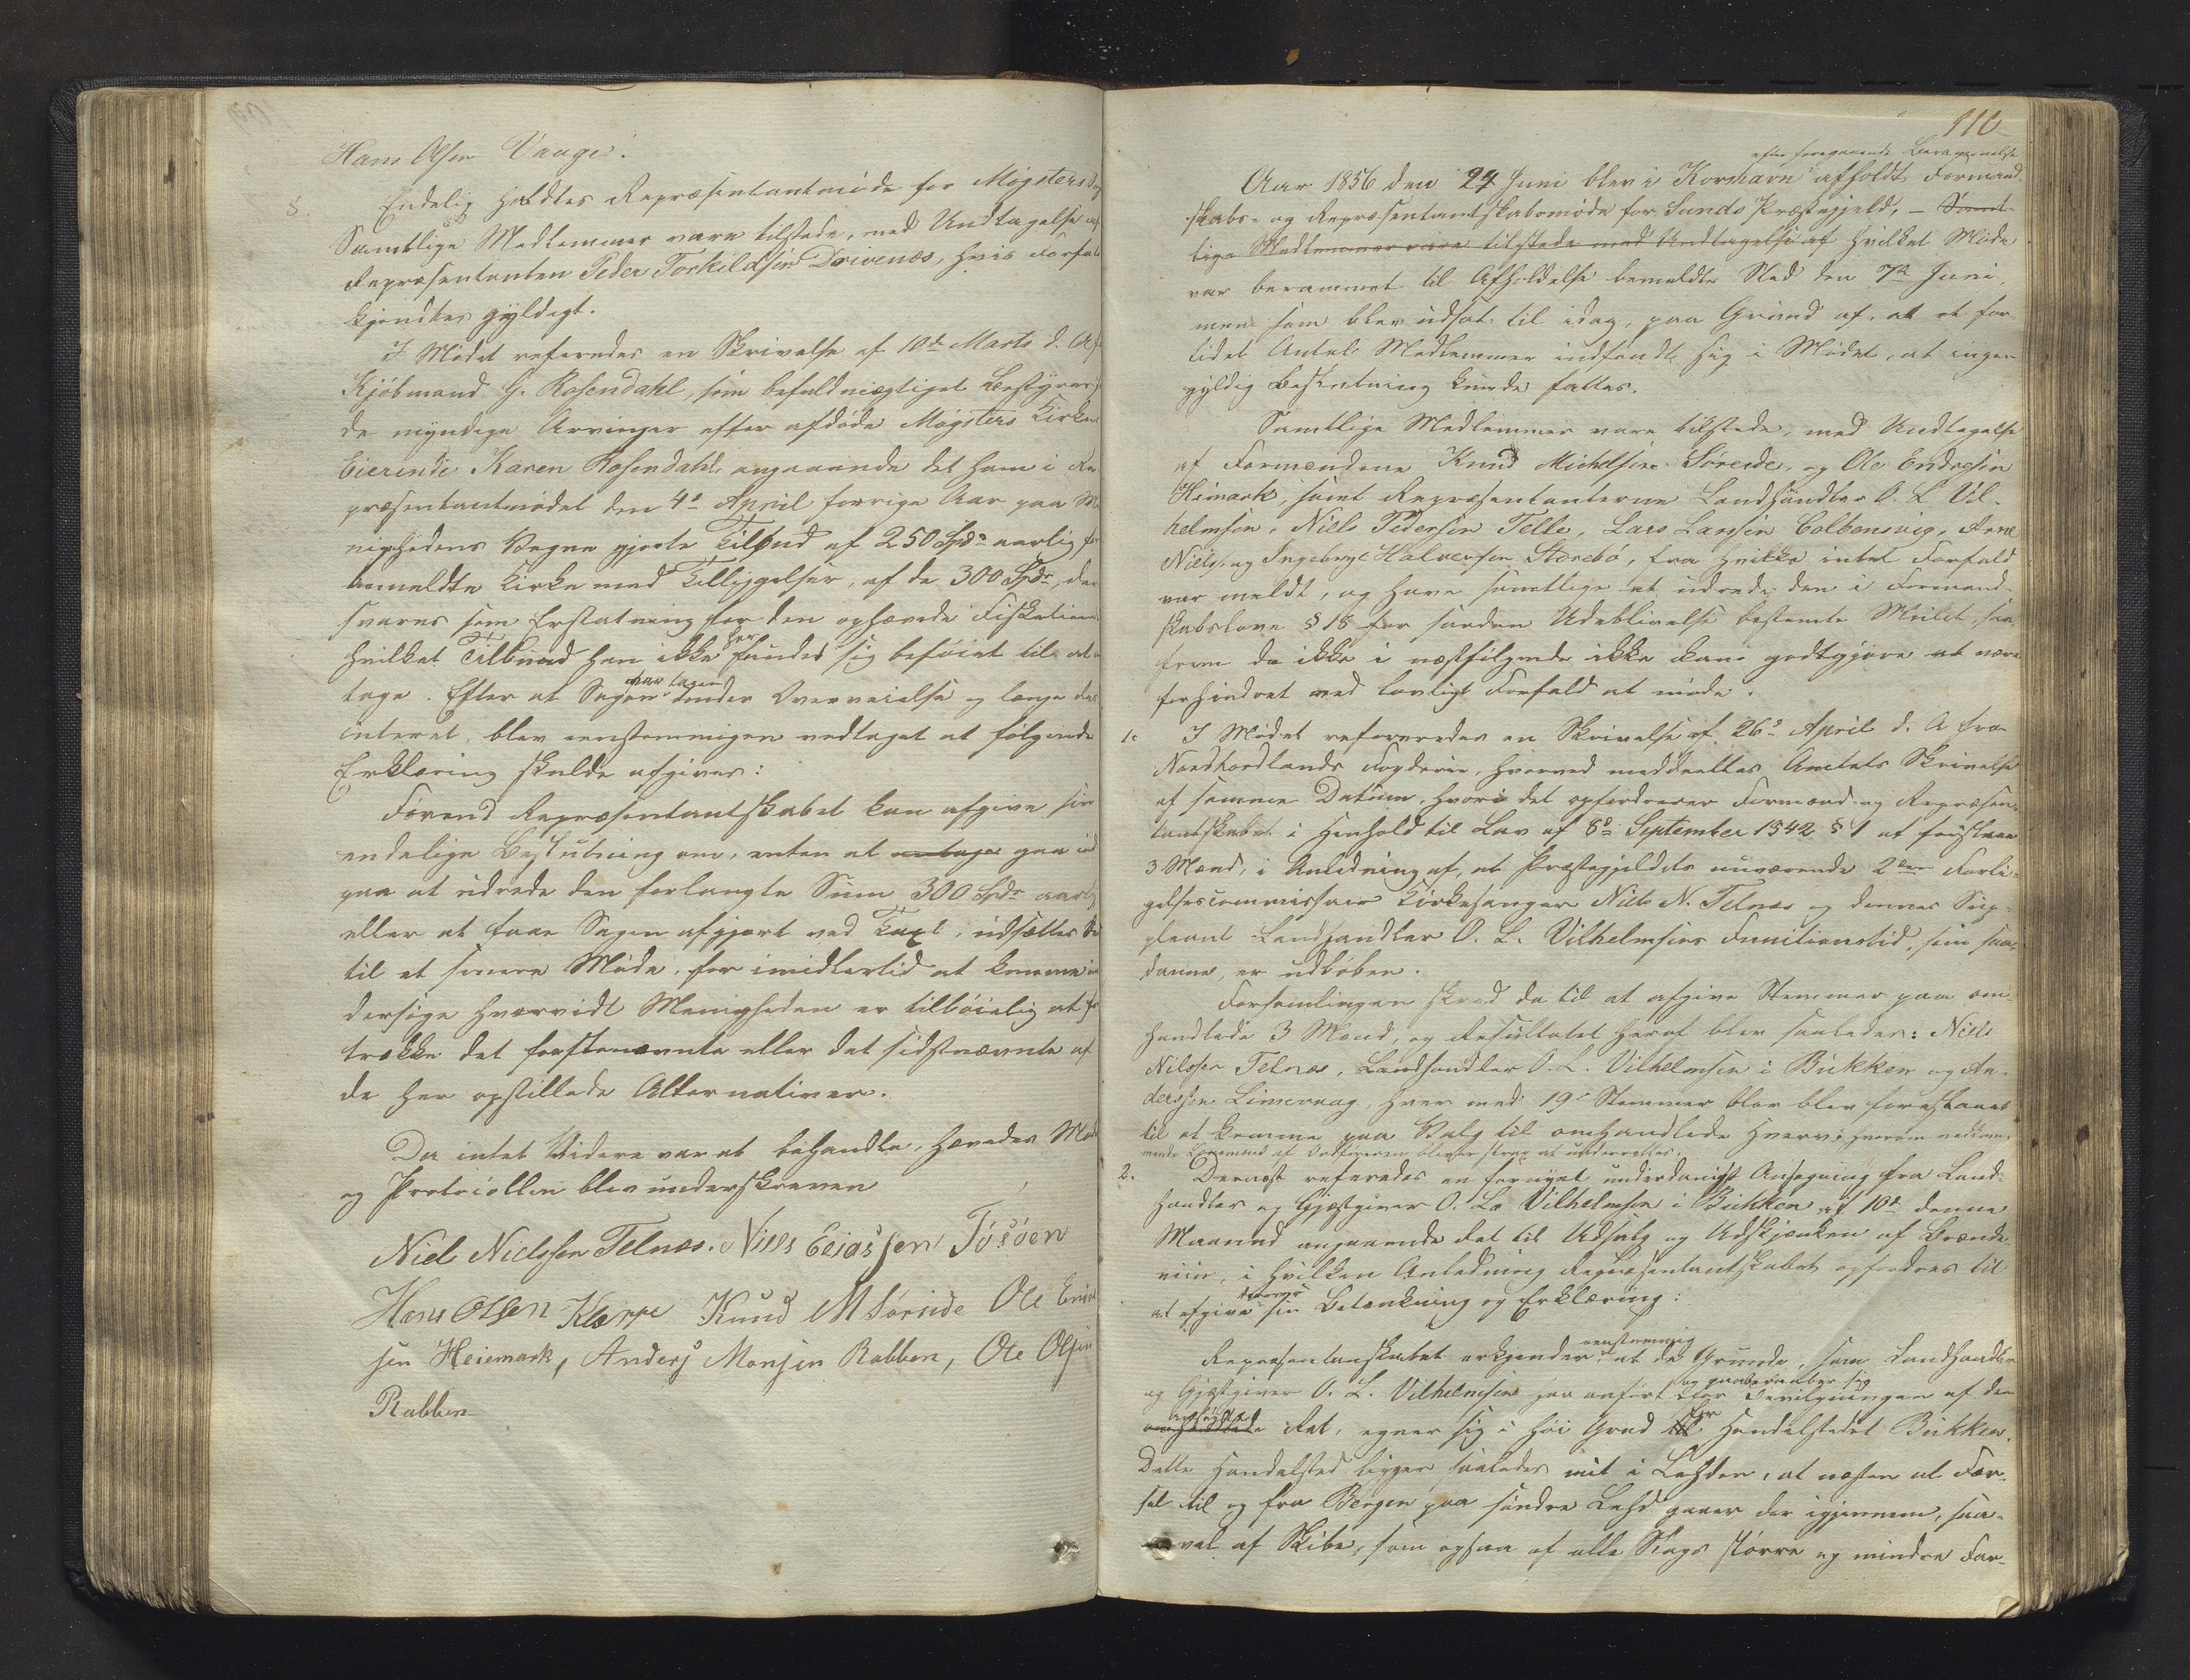 Hans Olsen Vaage.
8. Endelig holdtes Repræsentantmøde for Møgsters Sogn
Samtlige Medlemmer vare tilstede, med Undtagelse af
Repræsentanten Peder Torkildsen Drivenes, hvis Forfald
kjendtes gyldigt.
I Mødet refereredes en Skrivelse af 10de Marts d. A. fra
Kjøbmand G. Rosendahl, som befuldmægtiget Bestyrer for
de myndige Arvinger efter afdøde Møgsters Kirkes
Eierinde Karen Rosendahl, angaaende det ham i Re-
præsentantmødet den 4de April forrige Aar paa Me-
nighedens Vegne gjorte Tilbud af 250 Spd. aarlig for
bemeldte Kirke med Tilliggelser, af de 300 Spd., der
svares som Erstatning for den ophævede Fisketiende
hvilket Tilbud han ikke har fundet sig beføiet til at an-
tage. Efter at Sagen var tagen under Overveielse og længe dis-
cuteret, blev eenstemmigen vedtaget at følgende
Erklæring skulde afgives:
Førend Repræsentantskabet kan afgive sin
endelige Beslutning om, enten at antage gaa ind
paa at udrede den forlangte Sum 300 Spd. aarlig
eller at faae Sagen afgjort ved Taxt, udsættes den
til et senere Møde, for imidlertid at komme un-
dersøge hvorvidt Menigheden er tilbøielig at fore-
trække det førstenævnte eller det sidstnævnte af
de her opstillede Alternativer.
Da intet Videre var at behandle, hævedes Mødet
og Protocollen blev underskreven
Niels Nielssen Telnæs. Nills Eliassen Tøsøen
Hans Olsen Kleppe Knud M Sørside Ole Endre
sen Heiemark, Anders Monsen Rabben, Ole Olsen
Rabben
110
efter foregaaende Berammelse
Aar 1856 den 24 Juni blev i Korshavn afholdt Formand-
skabs- og Repræsentantskabsmøde for Sunds Præstegjeld, – Samt-
lige Medlemmer vare tilstede med Undtagelse af hvilket Møde
var berammet til Afholdelse bemeldte Sted den 7de Juni,
men som blev udsat til idag, paa Grund af, at et for
lidet Antal Medlemmer indfandt sig i Mødet, at ingen
gyldig Beslutning kunde fattes.
Samtlige Medlemmer vare tilstede, med Undtagelse
af Formændene Knud Michelsen Sørside, og Ole Endresen
Heimark, samt Repræsentanterne Landhandler O. L. Vil-
helmsen, Niels Pedersen Telle, Lars Larssen Colbensvig, Arne
Niels. og Ingebrigt Halversen Storebø, fra hvilke intet Forfald
var meldt, og have samtlige at udrede den i Formand-
skabsloven § 18 for saadan Udeblivelse bestemte Mulkt, saa-
frem de ikke i næstfølgende ikke kan godtgjøre at være
forhindret ved lovligt Forfald at møde.
1. I Mødet refereredes en Skrivelse af 26de April d. A fra
Nordhordlands Fogderie, hvorved meddeeltes Amtets Skrivelse
af samme Datum, hvori det opfordrerer Formand- og Repræsen-
tantskabet i Henhold til Lov af 8de September 1842 § 1 at foreslaae
3 Mænd, i Anledning af, at Præstegjeldets nuværende 2den Forli-
gelsescommissair Kirkesanger Niels N. Telnæs og dennes Sup-
pleant Landhandler O. L. Vilhelmsens Functionstid, som saa-
danne, er udløben.
Forsamlingen skred da til at afgive Stemmer paa om-
handlede 3 Mænd, og Resultatet heraf blev saaledes: Niels
Nilssen Telnæs, Landhandler O. L. Vilhelmsen i Bukken og An-
derssen Limevaag, hver med 19 Stemmer blev blev foreslaaet
til at komme paa Valg til omhandlede Hverv, hvorom vedkom-
mende Lensmand af Ordføreren bliver strax at underrettes.
2. Dernæst refereredes en fornyet underdanigst Ansøgning fra Land-
handler og Gjæstgiver O. L. Vilhelmsen i Bukken af 10de denne
Maaned angaaende Ret til Udsalg og Udskjænken af Brænde-
viin, i hvilken Anledning Repræsentantskabet opfordres til
at afgive sin Betænkning og Erklæring:
Repræsentanskabet erkjender eenstemmig, at de Grunde, som Landhandler
og Gjæstgiver O. L. Vilhelmsen har anført og paaberaaber sig for Bevilgningen af den
omhandlede ansøgte Ret, egner sig i høi Grad til for Handelstedet Bukken.
Dette Handelsted ligger saaledes mit i Lehden, at næsten al Fær-
sel til og fra Bergen paa søndre Lehd gaaer der igjennem, saa-
vel af Skibe, som ogsaa af alle Slags større og mindre Far-